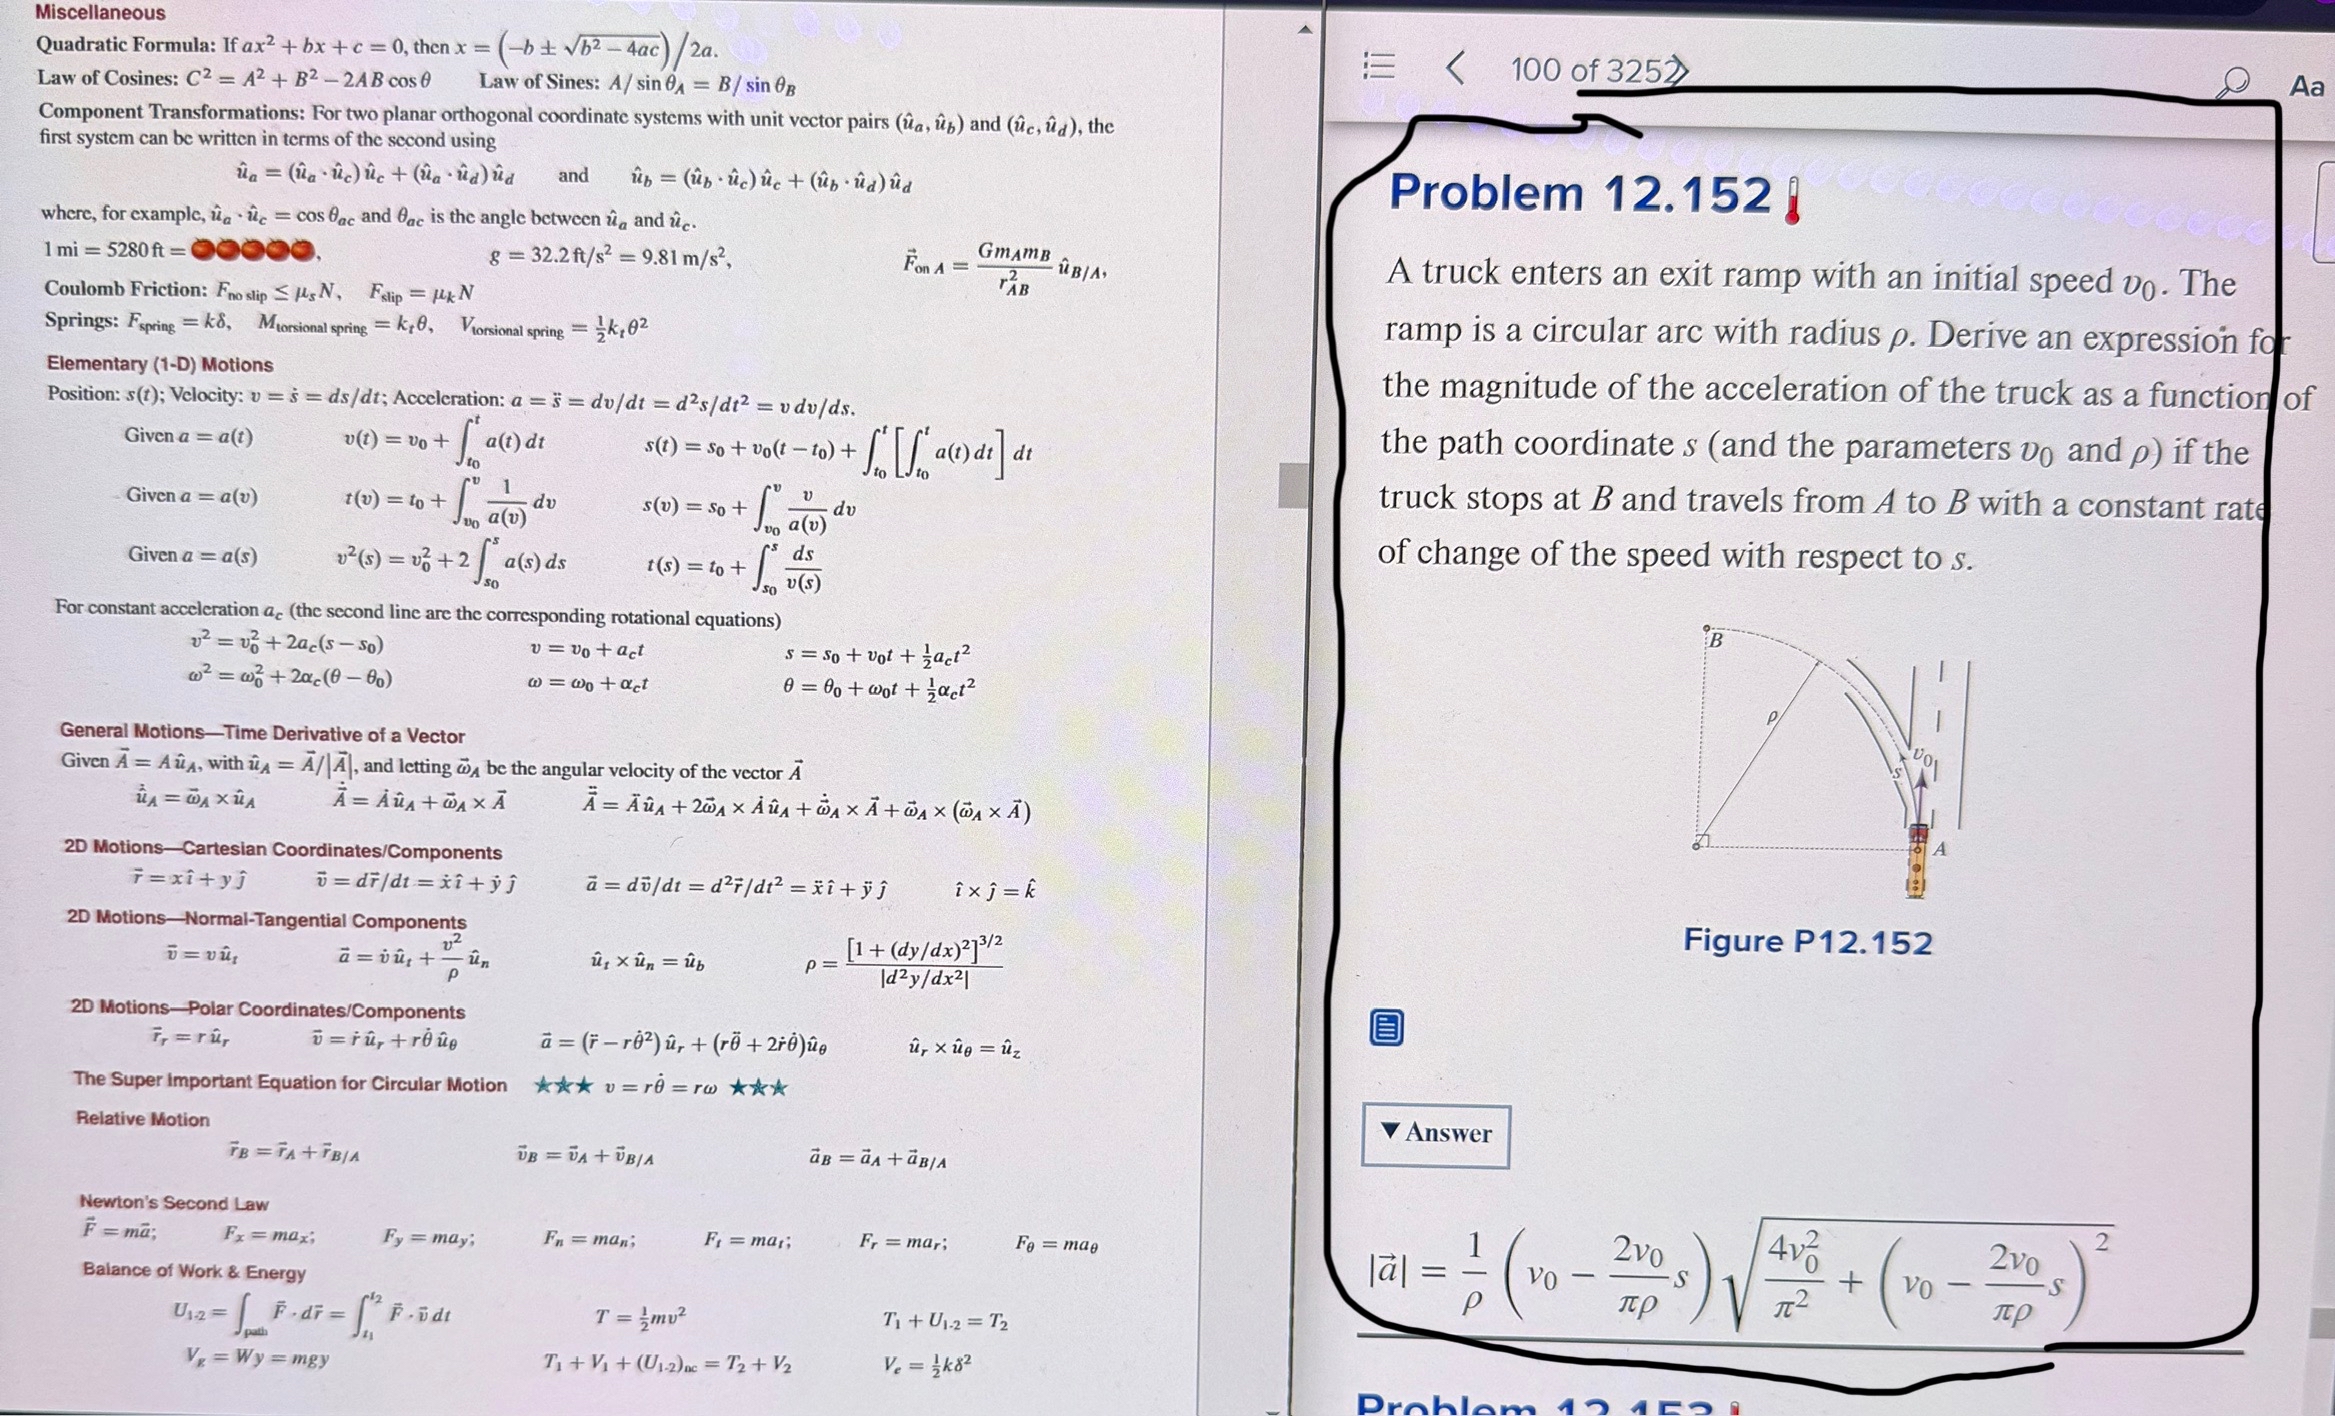 Miscellaneous
Quadratic Formula: If ax² + bx + c = 0, then x = (−b ± √(b² − 4ac)) / 2a.
Law of Cosines: C² = A² + B² − 2AB cos θ Law of Sines: A/ sin θ_A = B/ sin θ_B
Component Transformations: For two planar orthogonal coordinate systems with unit vector pairs (û_a, û_b) and (û_c, û_d), the
first system can be written in terms of the second using
û_a = (û_a · û_c) û_c + (û_a · û_d) û_d and û_b = (û_b · û_c) û_c + (û_b · û_d) û_d
where, for example, û_a · û_c = cos θ_ac and θ_ac is the angle between û_a and û_c.
1 mi = 5280 ft = 🍅🍅🍅🍅🍅, g = 32.2 ft/s² = 9.81 m/s², F⃗_on A = (G m_A m_B / r²_AB) û_B/A,
Coulomb Friction: F_no slip ≤ μ_s N, F_slip = μ_k N
Springs: F_spring = kδ, M_torsional spring = k_t θ, V_torsional spring = ½ k_t θ²
Elementary (1-D) Motions
Position: s(t); Velocity: v = ṡ = ds/dt; Acceleration: a = s̈ = dv/dt = d²s/dt² = v dv/ds.
Given a = a(t) v(t) = v₀ + ∫_{t₀}^{t} a(t) dt s(t) = s₀ + v₀(t − t₀) + ∫_{t₀}^{t} [∫_{t₀}^{t} a(t) dt] dt
Given a = a(v) t(v) = t₀ + ∫_{v₀}^{v} 1/a(v) dv s(v) = s₀ + ∫_{v₀}^{v} v/a(v) dv
Given a = a(s) v²(s) = v₀² + 2 ∫_{s₀}^{s} a(s) ds t(s) = t₀ + ∫_{s₀}^{s} ds/v(s)
For constant acceleration a_c (the second line are the corresponding rotational equations)
v² = v₀² + 2a_c(s − s₀) v = v₀ + a_c t s = s₀ + v₀t + ½ a_c t²
ω² = ω₀² + 2α_c(θ − θ₀) ω = ω₀ + α_c t θ = θ₀ + ω₀t + ½ α_c t²
General Motions—Time Derivative of a Vector
Given A⃗ = A û_A, with û_A = A⃗/|A⃗|, and letting ω⃗_A be the angular velocity of the vector A⃗
û̇_A = ω⃗_A × û_A A⃗̇ = Ȧ û_A + ω⃗_A × A⃗ A⃗̈ = Ä û_A + 2ω⃗_A × Ȧ û_A + ω⃗̇_A × A⃗ + ω⃗_A × (ω⃗_A × A⃗)
2D Motions—Cartesian Coordinates/Components
r⃗ = x î + y ĵ v⃗ = dr⃗/dt = ẋ î + ẏ ĵ a⃗ = dv⃗/dt = d²r⃗/dt² = ẍ î + ÿ ĵ î × ĵ = k̂
2D Motions—Normal-Tangential Components
v⃗ = v û_t a⃗ = v̇ û_t + (v²/ρ) û_n û_t × û_n = û_b ρ = [1 + (dy/dx)²]^{3/2} / |d²y/dx²|
2D Motions—Polar Coordinates/Components
r⃗_r = r û_r v⃗ = ṙ û_r + rθ̇ û_θ a⃗ = (r̈ − rθ̇²) û_r + (rθ̈ + 2ṙθ̇) û_θ û_r × û_θ = û_z
The Super Important Equation for Circular Motion ★★★ v = rθ̇ = rω ★★★
Relative Motion
r⃗_B = r⃗_A + r⃗_B/A v⃗_B = v⃗_A + v⃗_B/A a⃗_B = a⃗_A + a⃗_B/A
Newton's Second Law
F⃗ = ma⃗; F_x = ma_x; F_y = ma_y; F_n = ma_n; F_t = ma_t; F_r = ma_r; F_θ = ma_θ
Balance of Work & Energy
U_1-2 = ∫_path F⃗ · dr⃗ = ∫_{t₁}^{t₂} F⃗ · v⃗ dt T = ½ mv² T₁ + U_1-2 = T₂
V_g = Wy = mgy T₁ + V₁ + (U_1-2)_nc = T₂ + V₂ V_e = ½ kδ²
100 of 3252
Aa
Problem 12.152
A truck enters an exit ramp with an initial speed v₀. The
ramp is a circular arc with radius ρ. Derive an expression for
the magnitude of the acceleration of the truck as a function of
the path coordinate s (and the parameters v₀ and ρ) if the
truck stops at B and travels from A to B with a constant rate
of change of the speed with respect to s.
B
ρ
v₀
s
A
Figure P12.152
▼ Answer
|a⃗| = (1/ρ) (v₀ − (2v₀/πρ) s) √(4v₀²/π² + (v₀ − (2v₀/πρ) s)²)
Problem 12.153